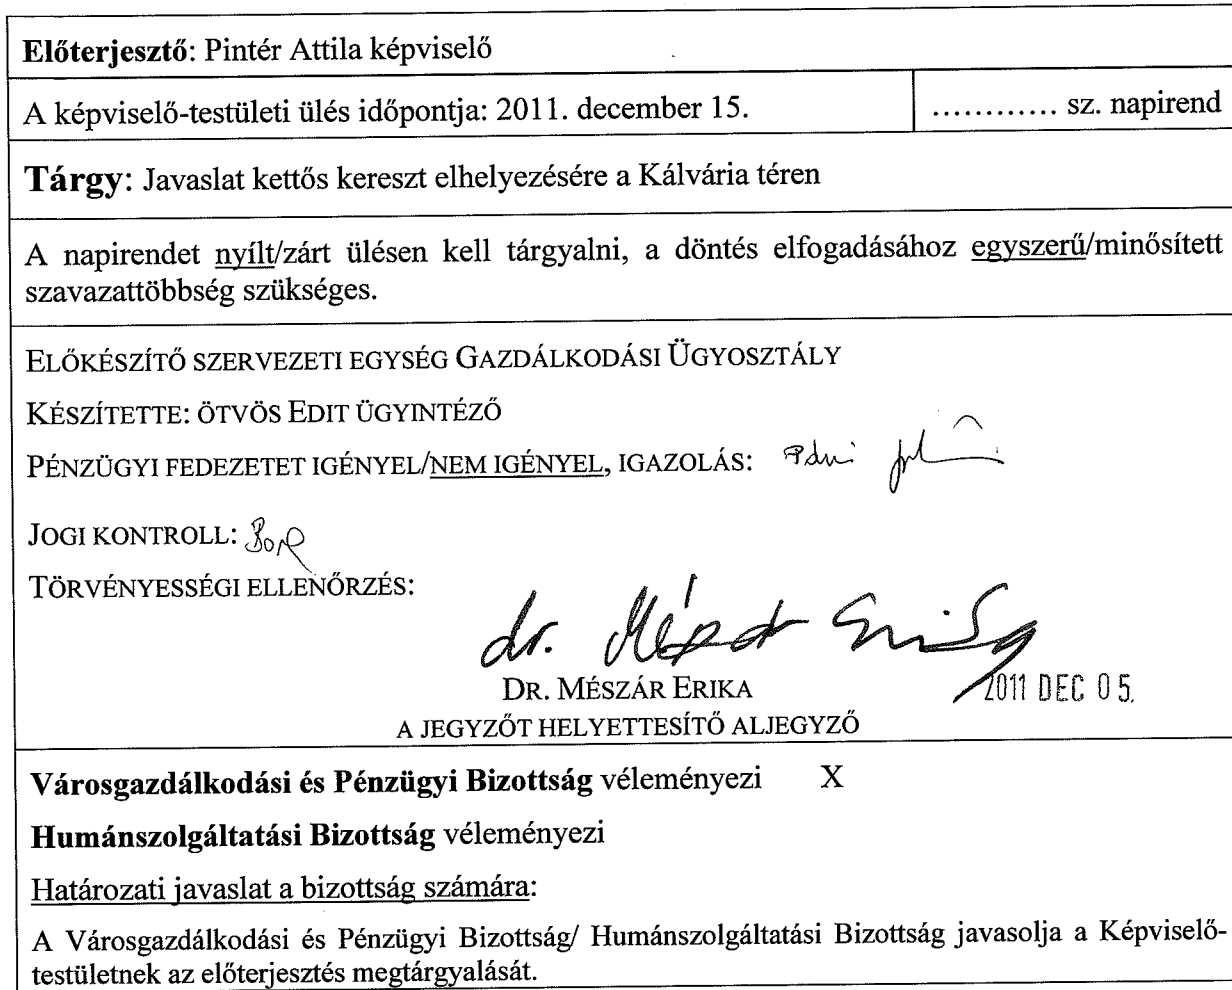 Előterjesztő: Pintér Attila képviselő
A képviselő-testületi ülés időpontja: 2011. december 15.
………… sz. napirend
Tárgy: Javaslat kettős kereszt elhelyezésére a Kálvária téren
A napirendet nyílt/zárt ülésen kell tárgyalni, a döntés elfogadásához egyszerű/minősített
szavazattöbbség szükséges.
ELŐKÉSZÍTŐ SZERVEZETI EGYSÉG GAZDÁLKODÁSI ÜGYOSZTÁLY
KÉSZÍTETTE: ÖTVÖS EDIT ÜGYINTÉZŐ
PÉNZÜGYI FEDEZETET IGÉNYEL/NEM IGÉNYEL, IGAZOLÁS:
JOGI KONTROLL:
TÖRVÉNYESSÉGI ELLENŐRZÉS:
dr. Mészár Erika
DR. MÉSZÁR ERIKA
2011 DEC 05.
A JEGYZŐT HELYETTESÍTŐ ALJEGYZŐ
Városgazdálkodási és Pénzügyi Bizottság véleményezi X
Humánszolgáltatási Bizottság véleményezi
Határozati javaslat a bizottság számára:
A Városgazdálkodási és Pénzügyi Bizottság/ Humánszolgáltatási Bizottság javasolja a Képviselő-
testületnek az előterjesztés megtárgyalását.